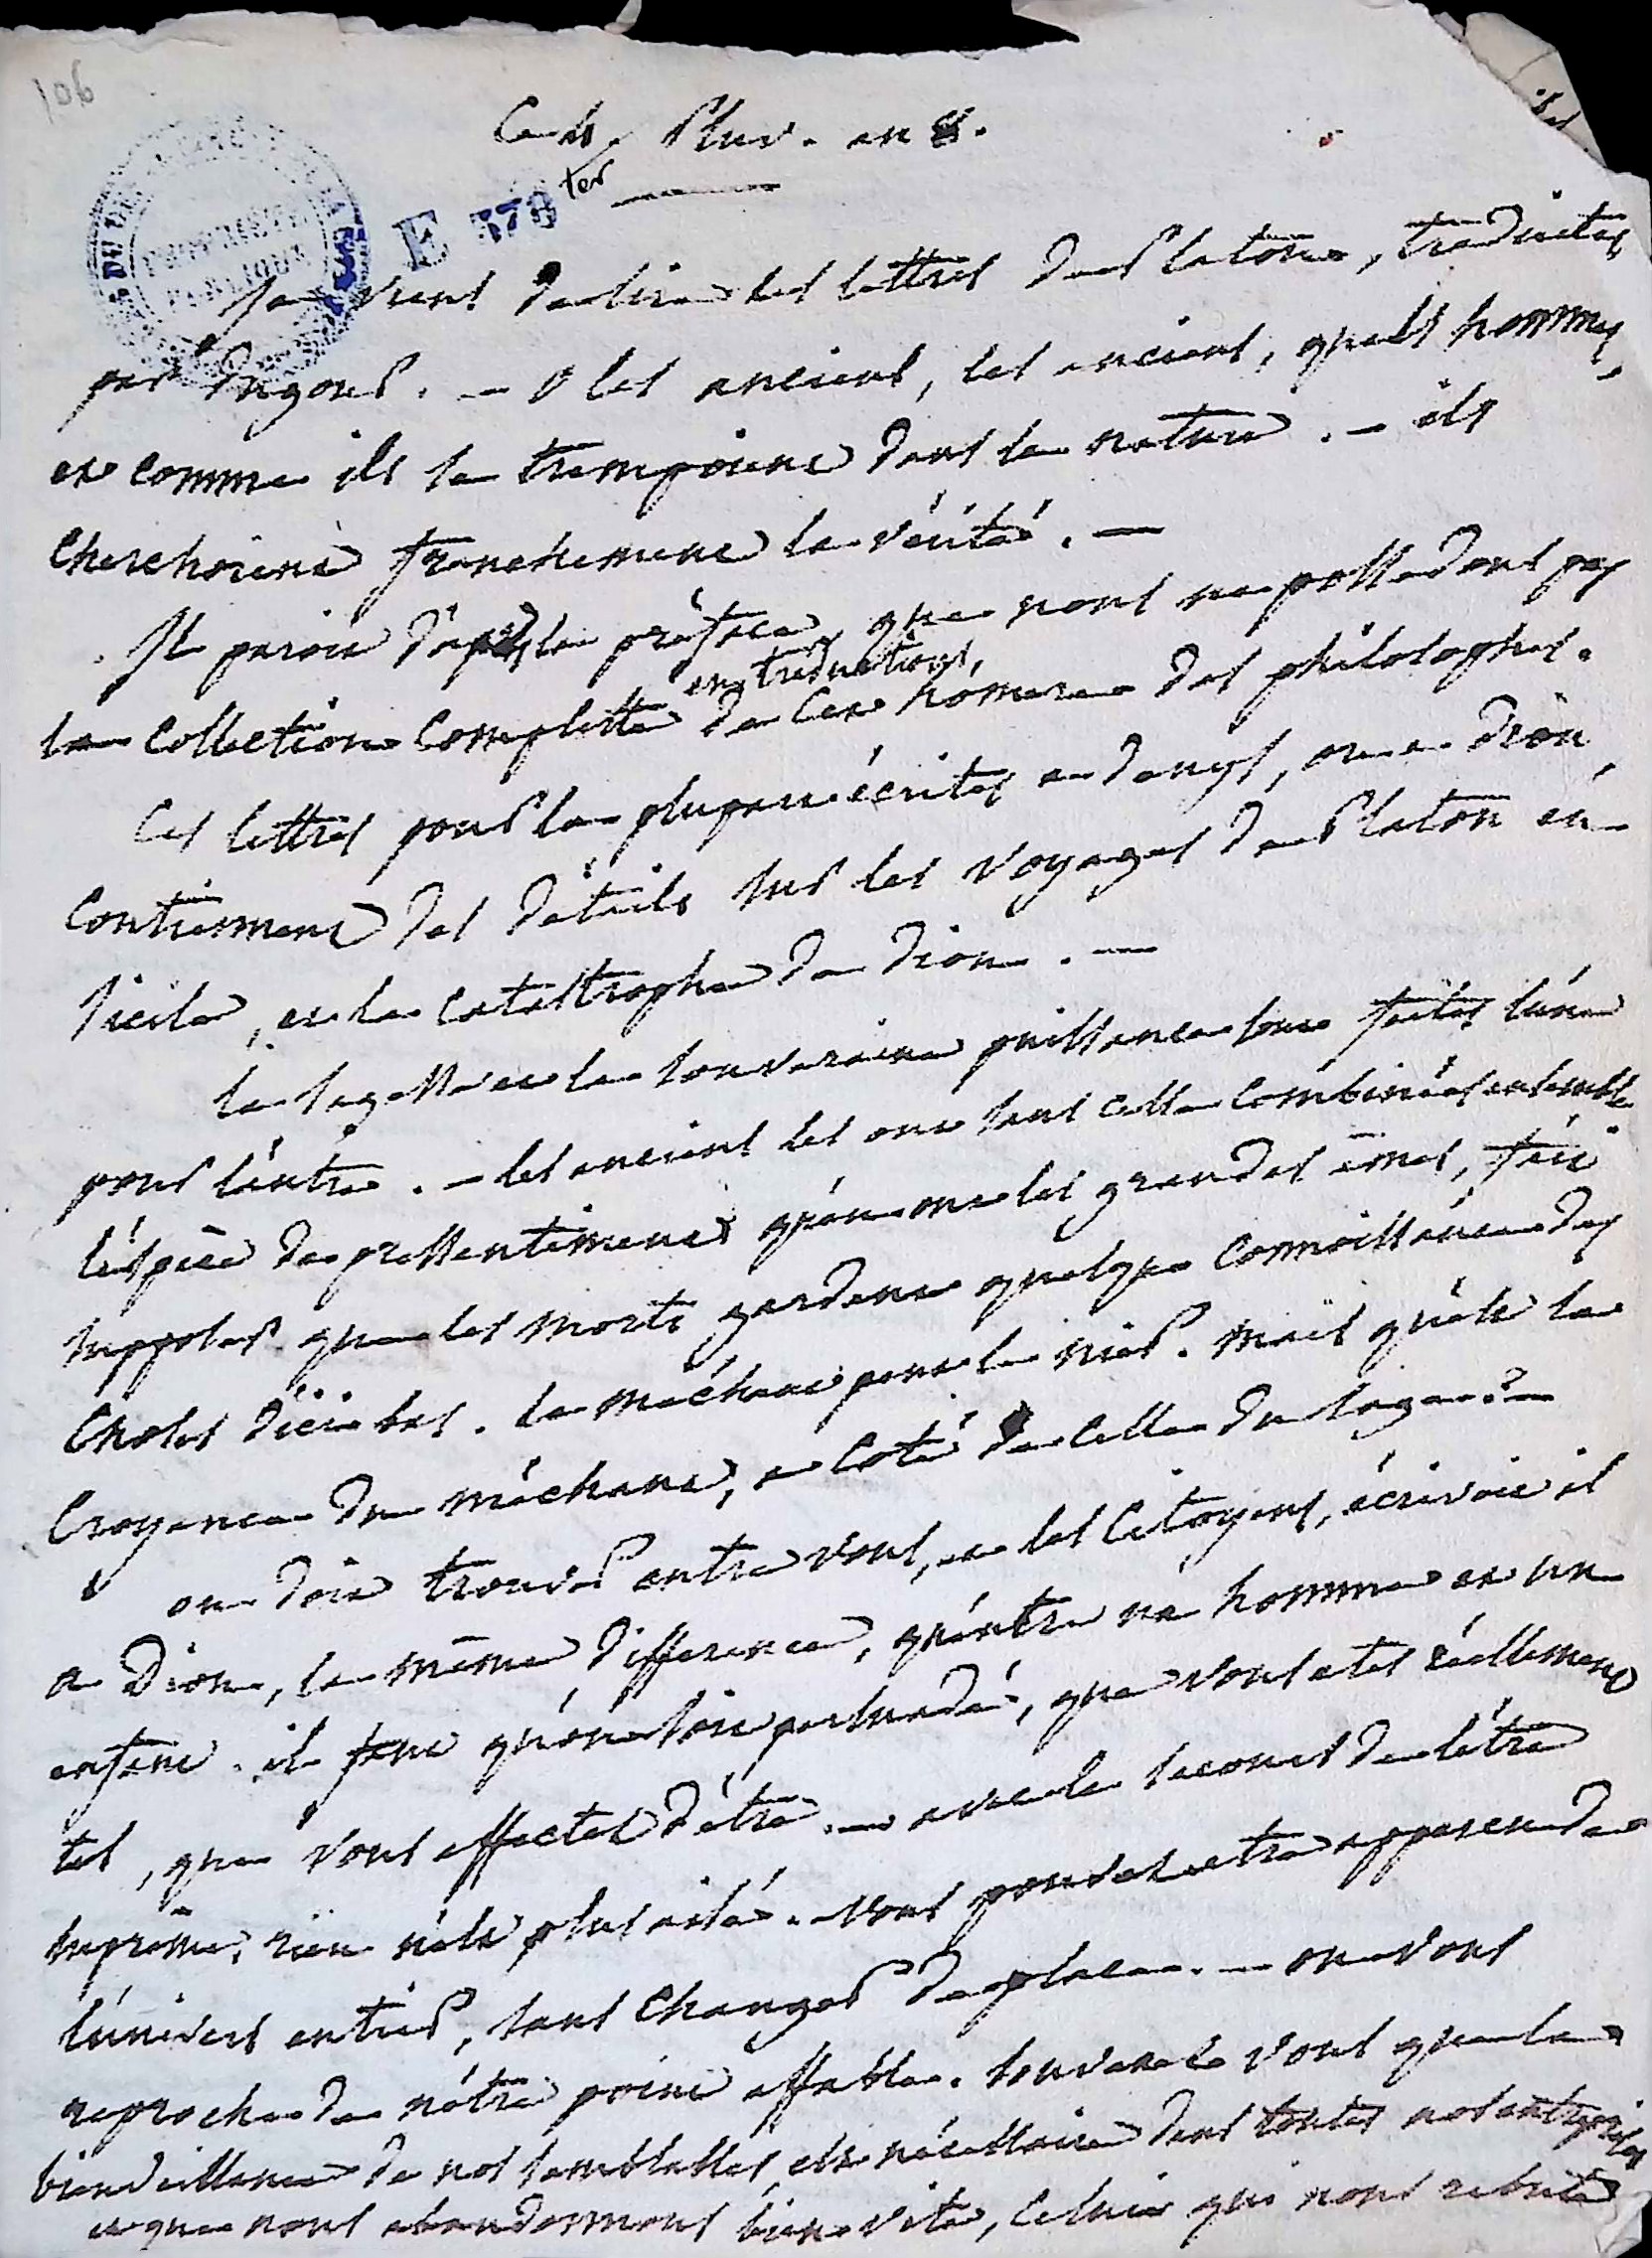 106
Ce 4. Pluv. an 8.
E 378 ter
PROPRIÉTÉ PUBLIQUE
Je viens de lire les lettres de Platon, traduites
par Dugour. — O les anciens, les anciens, quels hommes,
et comme ils se trempoient dans la nature. — ils
cherchoient franchement la vérité. —
Il paroit d'après la préface, que nous ne possedons pas
la collection complette en traductions, de cet homere des philosophes.
Ces lettres pour la plupart écrites a denys, ou a Dion,
contiennent des détails sur les voyages de Platon en
Sicile, et la catastrophe de Dion. —
la sagesse et la souveraine puissance sont faites l'une
pour l'autre. — les anciens les ont sans cesse combinées ensemble
l'espèce de pressentiment qu'en ont les grandes âmes, fait
supposer que les morts gardent quelque connoissance des
choses d'ici bas. le méchant peut le nier. mais qu'est la
croyance du méchant, a coté de celle du sage? —
on doit trouver entre vous, et les citoyens, écrivoit il
a Dion, la même difference, qu'entre un homme et un
enfant. il faut qu'on soit persuadé, que vous etes réellement
tel, que vous affectez d'être. — avec le secours de l'être
suprême, rien n'est plus aisé. vous pouvez etre apperçu de
l'univers entier, sans changer de place. — on vous
reproche de n'être point affable. souvenez vous que la
bienveillance de nos semblables, est nécessaire dans toutes nos entreprises
et que nous abandonnons bien vite, celui qui nous rebute